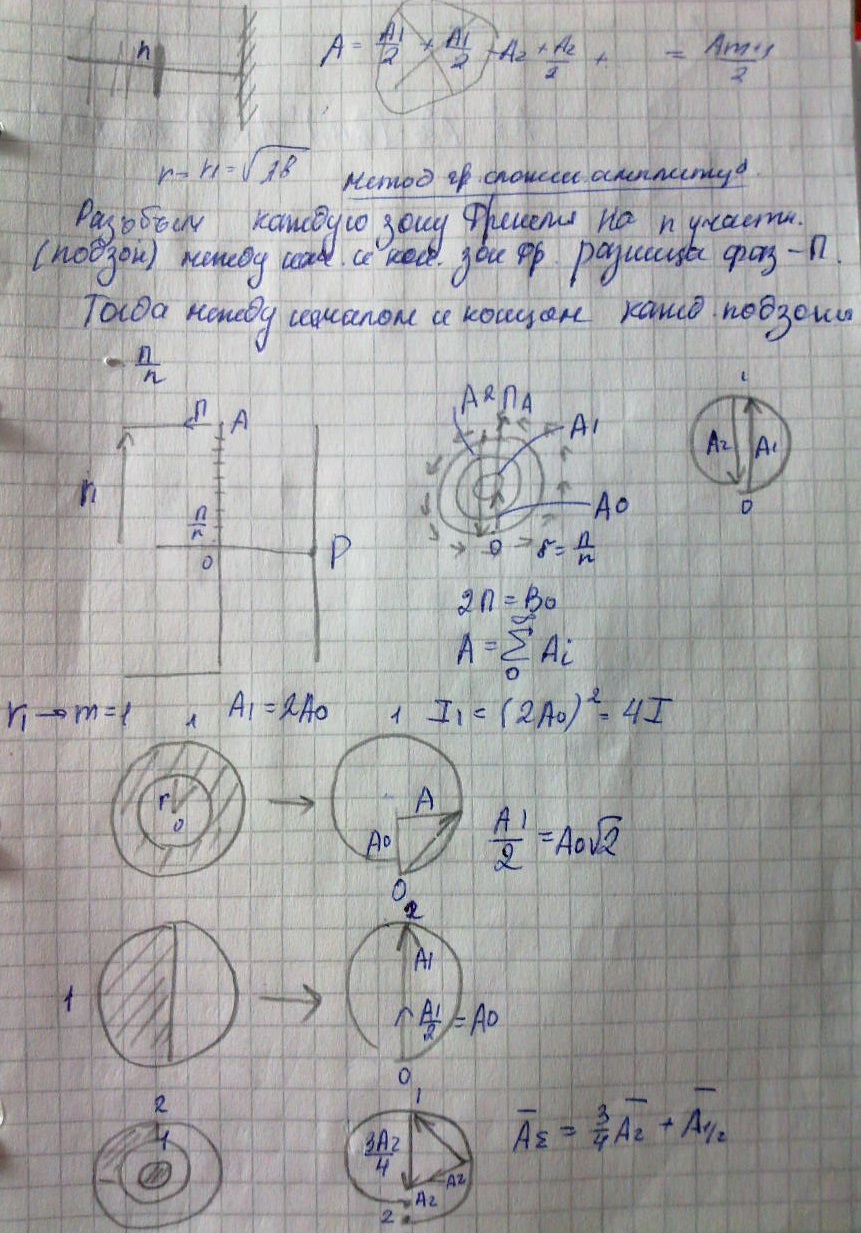 n
A = A1/2 + A1/2 - A2 + A2/2 + = Am+1/2
Метод гр. сложен. амплитуд
Разобьем каждую зону Френеля на n участк.
(подзон) между нач. и кон. зон фр. разница фаз - П.
Тогда между началом и концом кажд. подзоны
- П/n
П A
r1
П/n
O P
A2 П A
A1
A0
O δ = П/n
1
A2 A1
O
2П = B0
A = ∞ Σ 0 Ai
r1 → m=1 , A1 = 2A0 , I1 = (2A0)² = 4I
r
O
A
A0
O
A1/2 = A0√2
1
2
A1
A1/2 = A0
O
2
1
1
3A2/4
A2
A2
2
A̅Σ = 3/4 A̅2 + A̅1/2